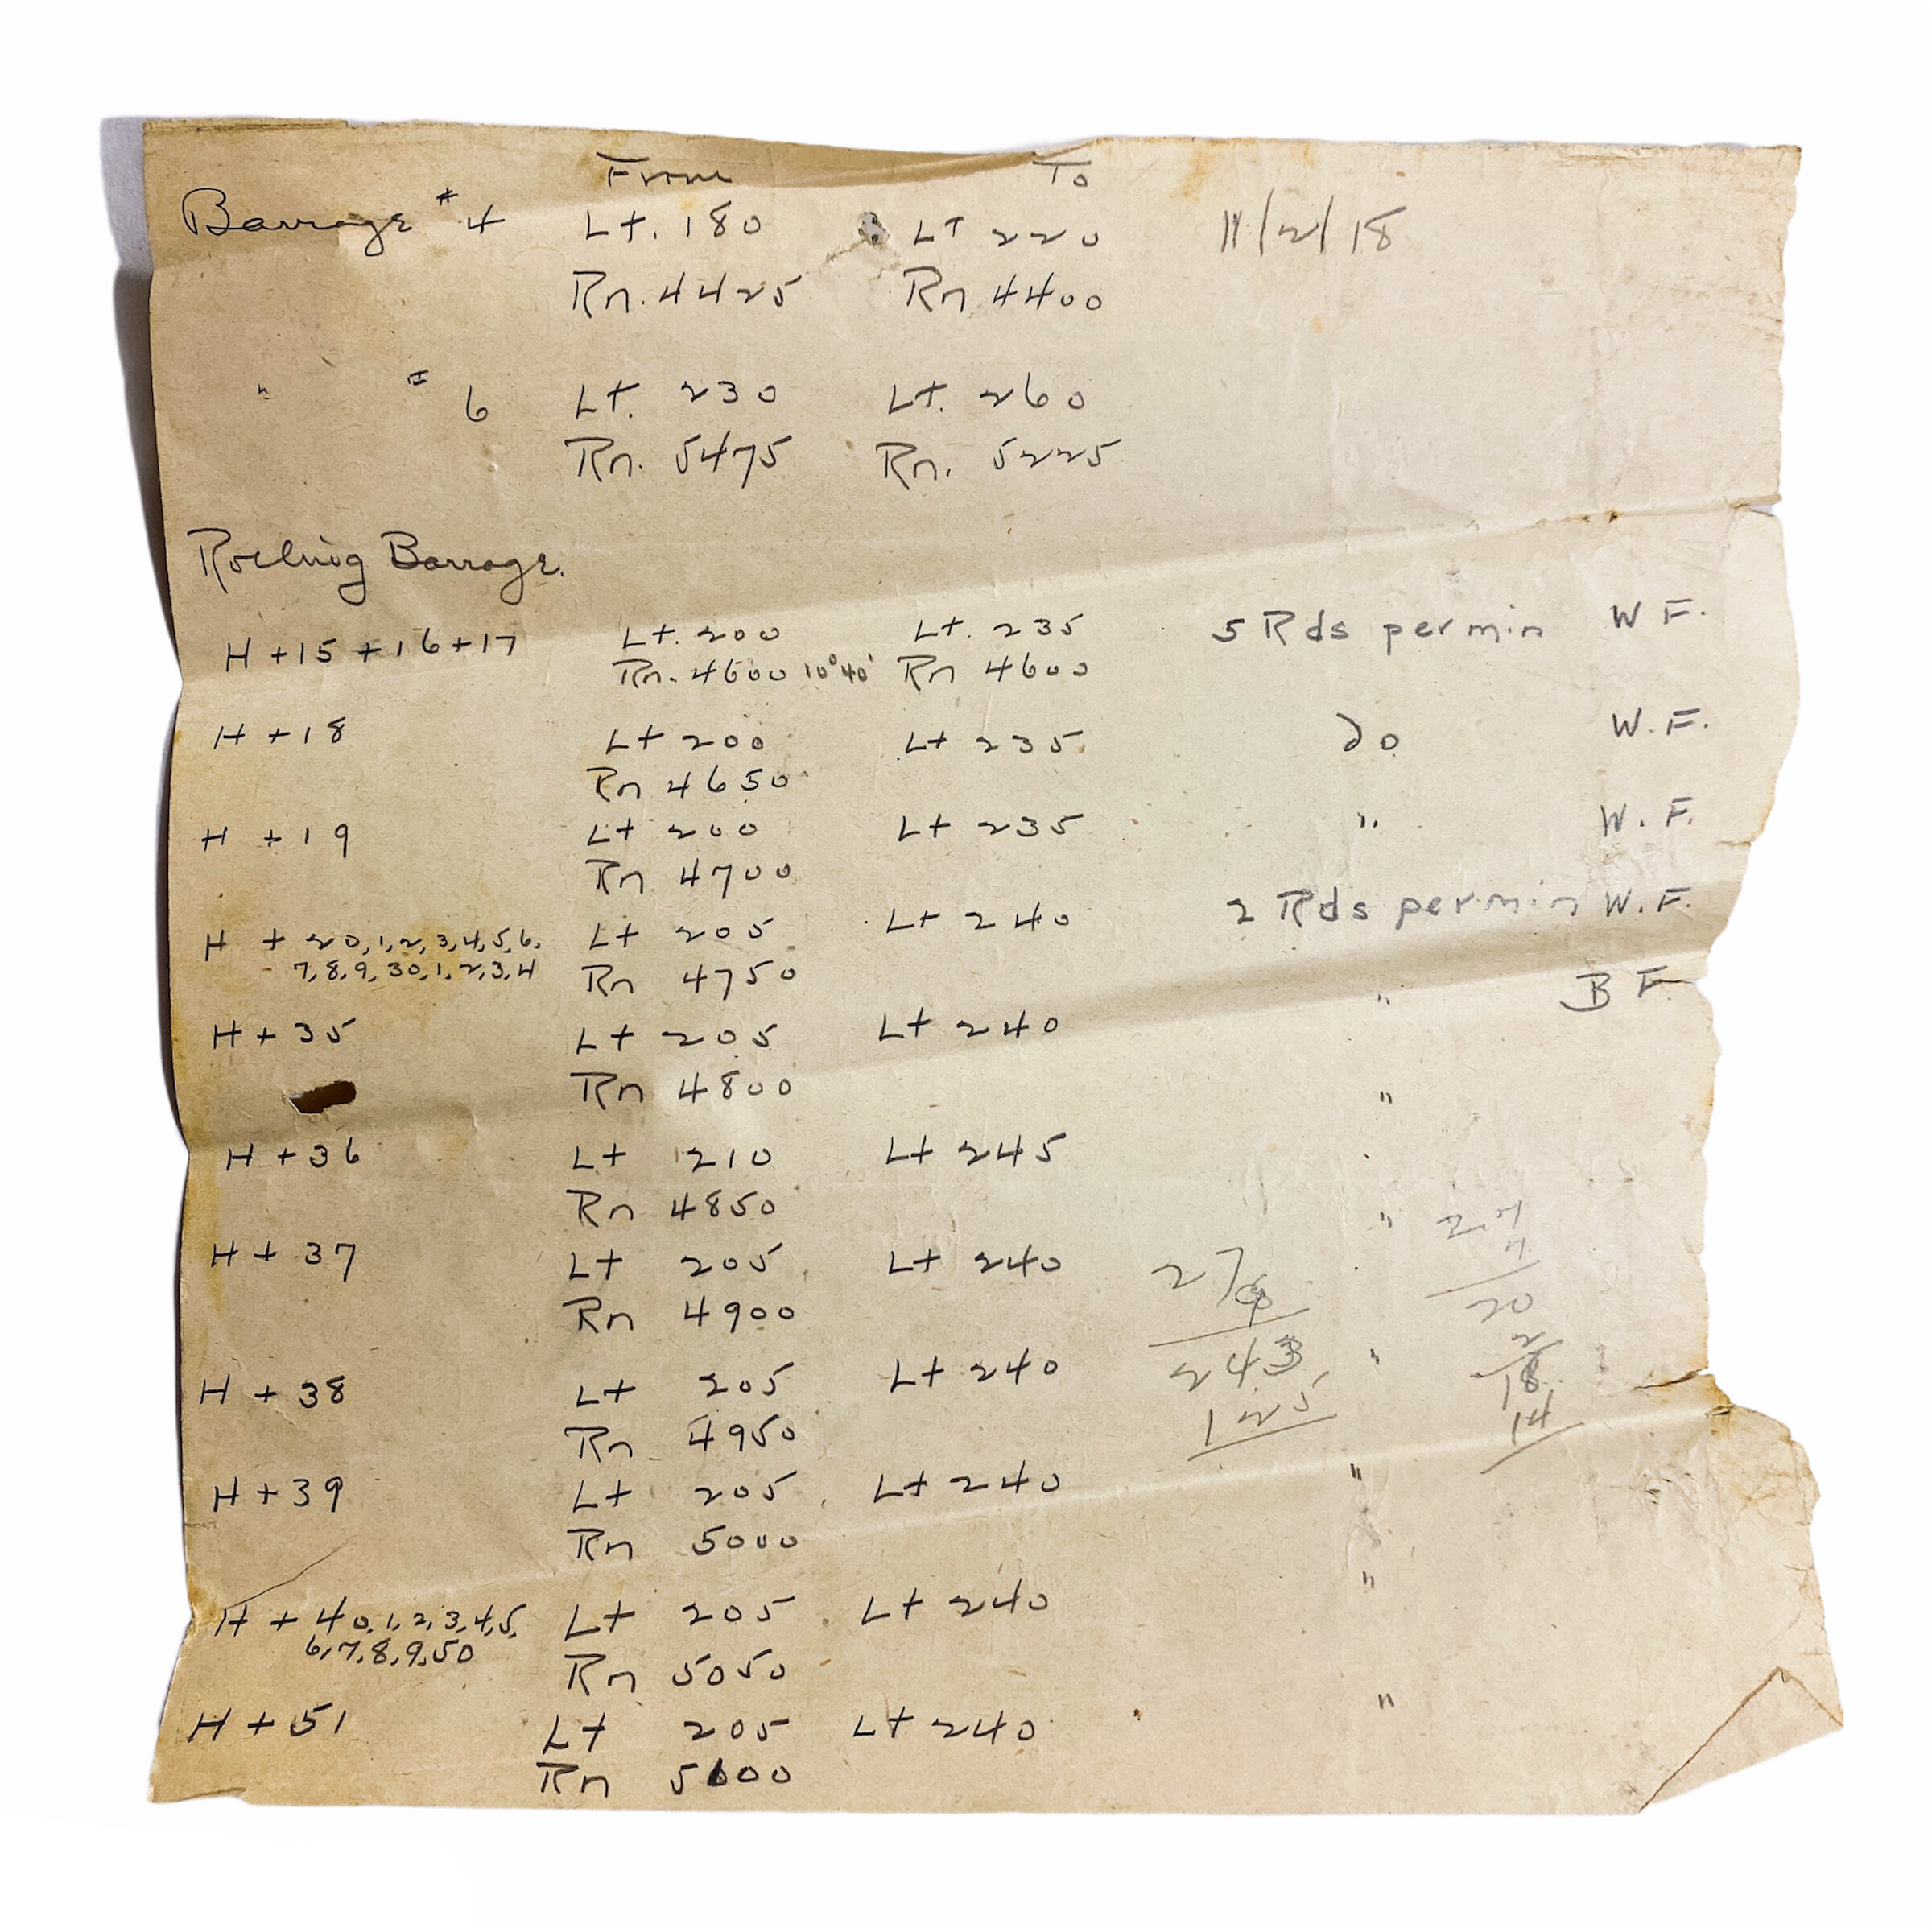 From To
Barrage #4 Lt. 180 Lt 220 11/2/18
Rn. 4425 Rn 4400
" # 6 Lt. 230 Lt. 260
Rn. 5475 Rn. 5225
Rolling Barrage.
H +15 +16 +17 Lt. 200 Lt. 235 5 Rds per min W F.
Rn. 4600 10°40' Rn 4600
H +18 Lt 200 Lt 235 do W.F.
Rn 4650
H +19 Lt 200 Lt 235 " W.F.
Rn 4700
H + 20,1,2,3,4,5,6, Lt 205 Lt 240 2 Rds per min W.F.
7,8,9,30,1,2,3,4 Rn 4750
" B F
H + 35 Lt 205 Lt 240
Rn 4800 "
H +36 Lt 210 Lt 245
Rn 4850 "
H + 37 Lt 205 Lt 240 27
Rn 4900 20
H + 38 Lt 205 Lt 240 243 " 18
Rn 4950 125 14
H +39 Lt 205 Lt 240 "
Rn 5000
H + 40,1,2,3,4,5, Lt 205 Lt 240 "
6,7,8,9,50 Rn 5050
H + 51 Lt 205 Lt 240 "
Rn 5100